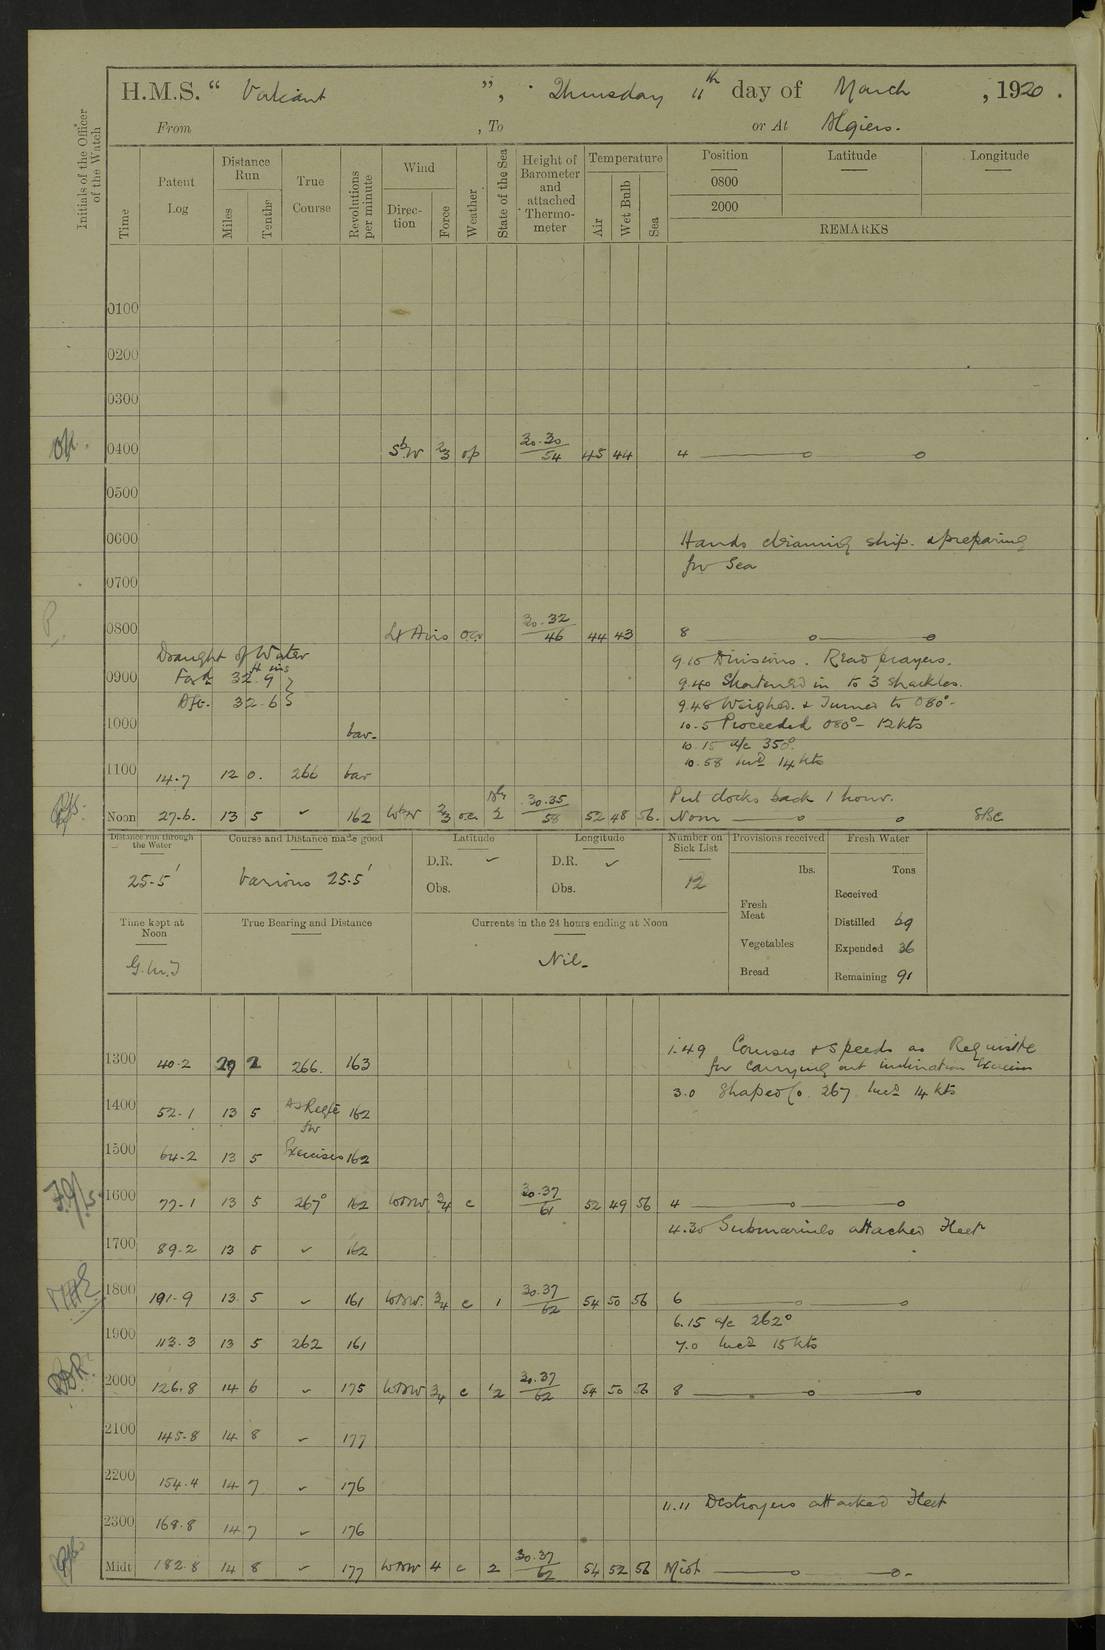 H.M.S. “ Valiant ”, Thursday 11th day of March, 1920.
From , To or At Algiers.
Initials of the Officer of the Watch
Time
Patent Log
Distance Run
Miles Tenths
True Course
Revolutions per minute
Wind
Direction Force
Weather
State of the Sea
Height of Barometer and attached Thermometer
Temperature
Air Wet Bulb Sea
Position Latitude Longitude
0800
2000
REMARKS
0100
0200
0300
0400 SbW 2/3 op 30.30/54 45 44 4
0500
0600 Hands cleaning ship. & preparing
for Sea
0700
0800 Lt Airs 30.32/46 44 43 8
Draught of Water 9.10 Divisions. Read prayers.
0900 Ford 32 ft 9 ins 9.40 Shortened in to 3 shackles.
Aft. 32.6 9.48 Weighed. & Turned to 080°-
1000 var. 10.5 Proceeded 080° - 12 kts
10.15 a/c 350°.
10.58 Incd 14 kts
1100 14.7 12 0. 266 var
Put clocks back 1 hour.
Noon 27.6. 13 5 ✓ 162 WbW 2/3 2 30.35/58 52 48 56. Noon
Distance run through the Water
25.5'
Course and Distance made good
Various 25.5'
Latitude
D.R. ✓
Obs.
Longitude
D.R. ✓
Obs.
Number on Sick List
12
Provisions received
lbs.
Fresh Meat
Vegetables
Bread
Fresh Water
Tons
Received
Distilled 69
Expended 36
Remaining 91
Time kept at Noon
G.M.T
True Bearing and Distance
Currents in the 24 hours ending at Noon
Nil.
1300 40.2 29 2 266. 163 1.49 Courses & speeds as Requisite
for carrying out inclination Exercises
1400 52.1 13 5 As Reqte for Exercises 162 3.0 Shaped Co. 267 Incd 14 kts
1500 64.2 13 5 162
1600 77.1 13 5 267° 162 WbW 3/4 c 30.37/61 52 49 56 4
4.30 Submarines attacked Fleet
1700 89.2 13 5 ✓ 162
1800 101.9 13 5 ✓ 161 WbW. 3/4 c 1 30.37/62 54 50 56 6
6.15 a/c 262°
1900 113.3 13 5 262 161 7.0 Incd 15 kts
2000 126.8 14 6 ✓ 175 WbW 3/4 c 1/2 30.37/62 54 50 56 8
2100 145.8 14 8 ✓ 177
2200 154.4 14 7 ✓ 176
11.11 Destroyers attacked Fleet
2300 168.8 14 7 ✓ 176
Midt 182.8 14 8 ✓ 177 WbW 4 c 2 30.37/62 54 52 56 Midt